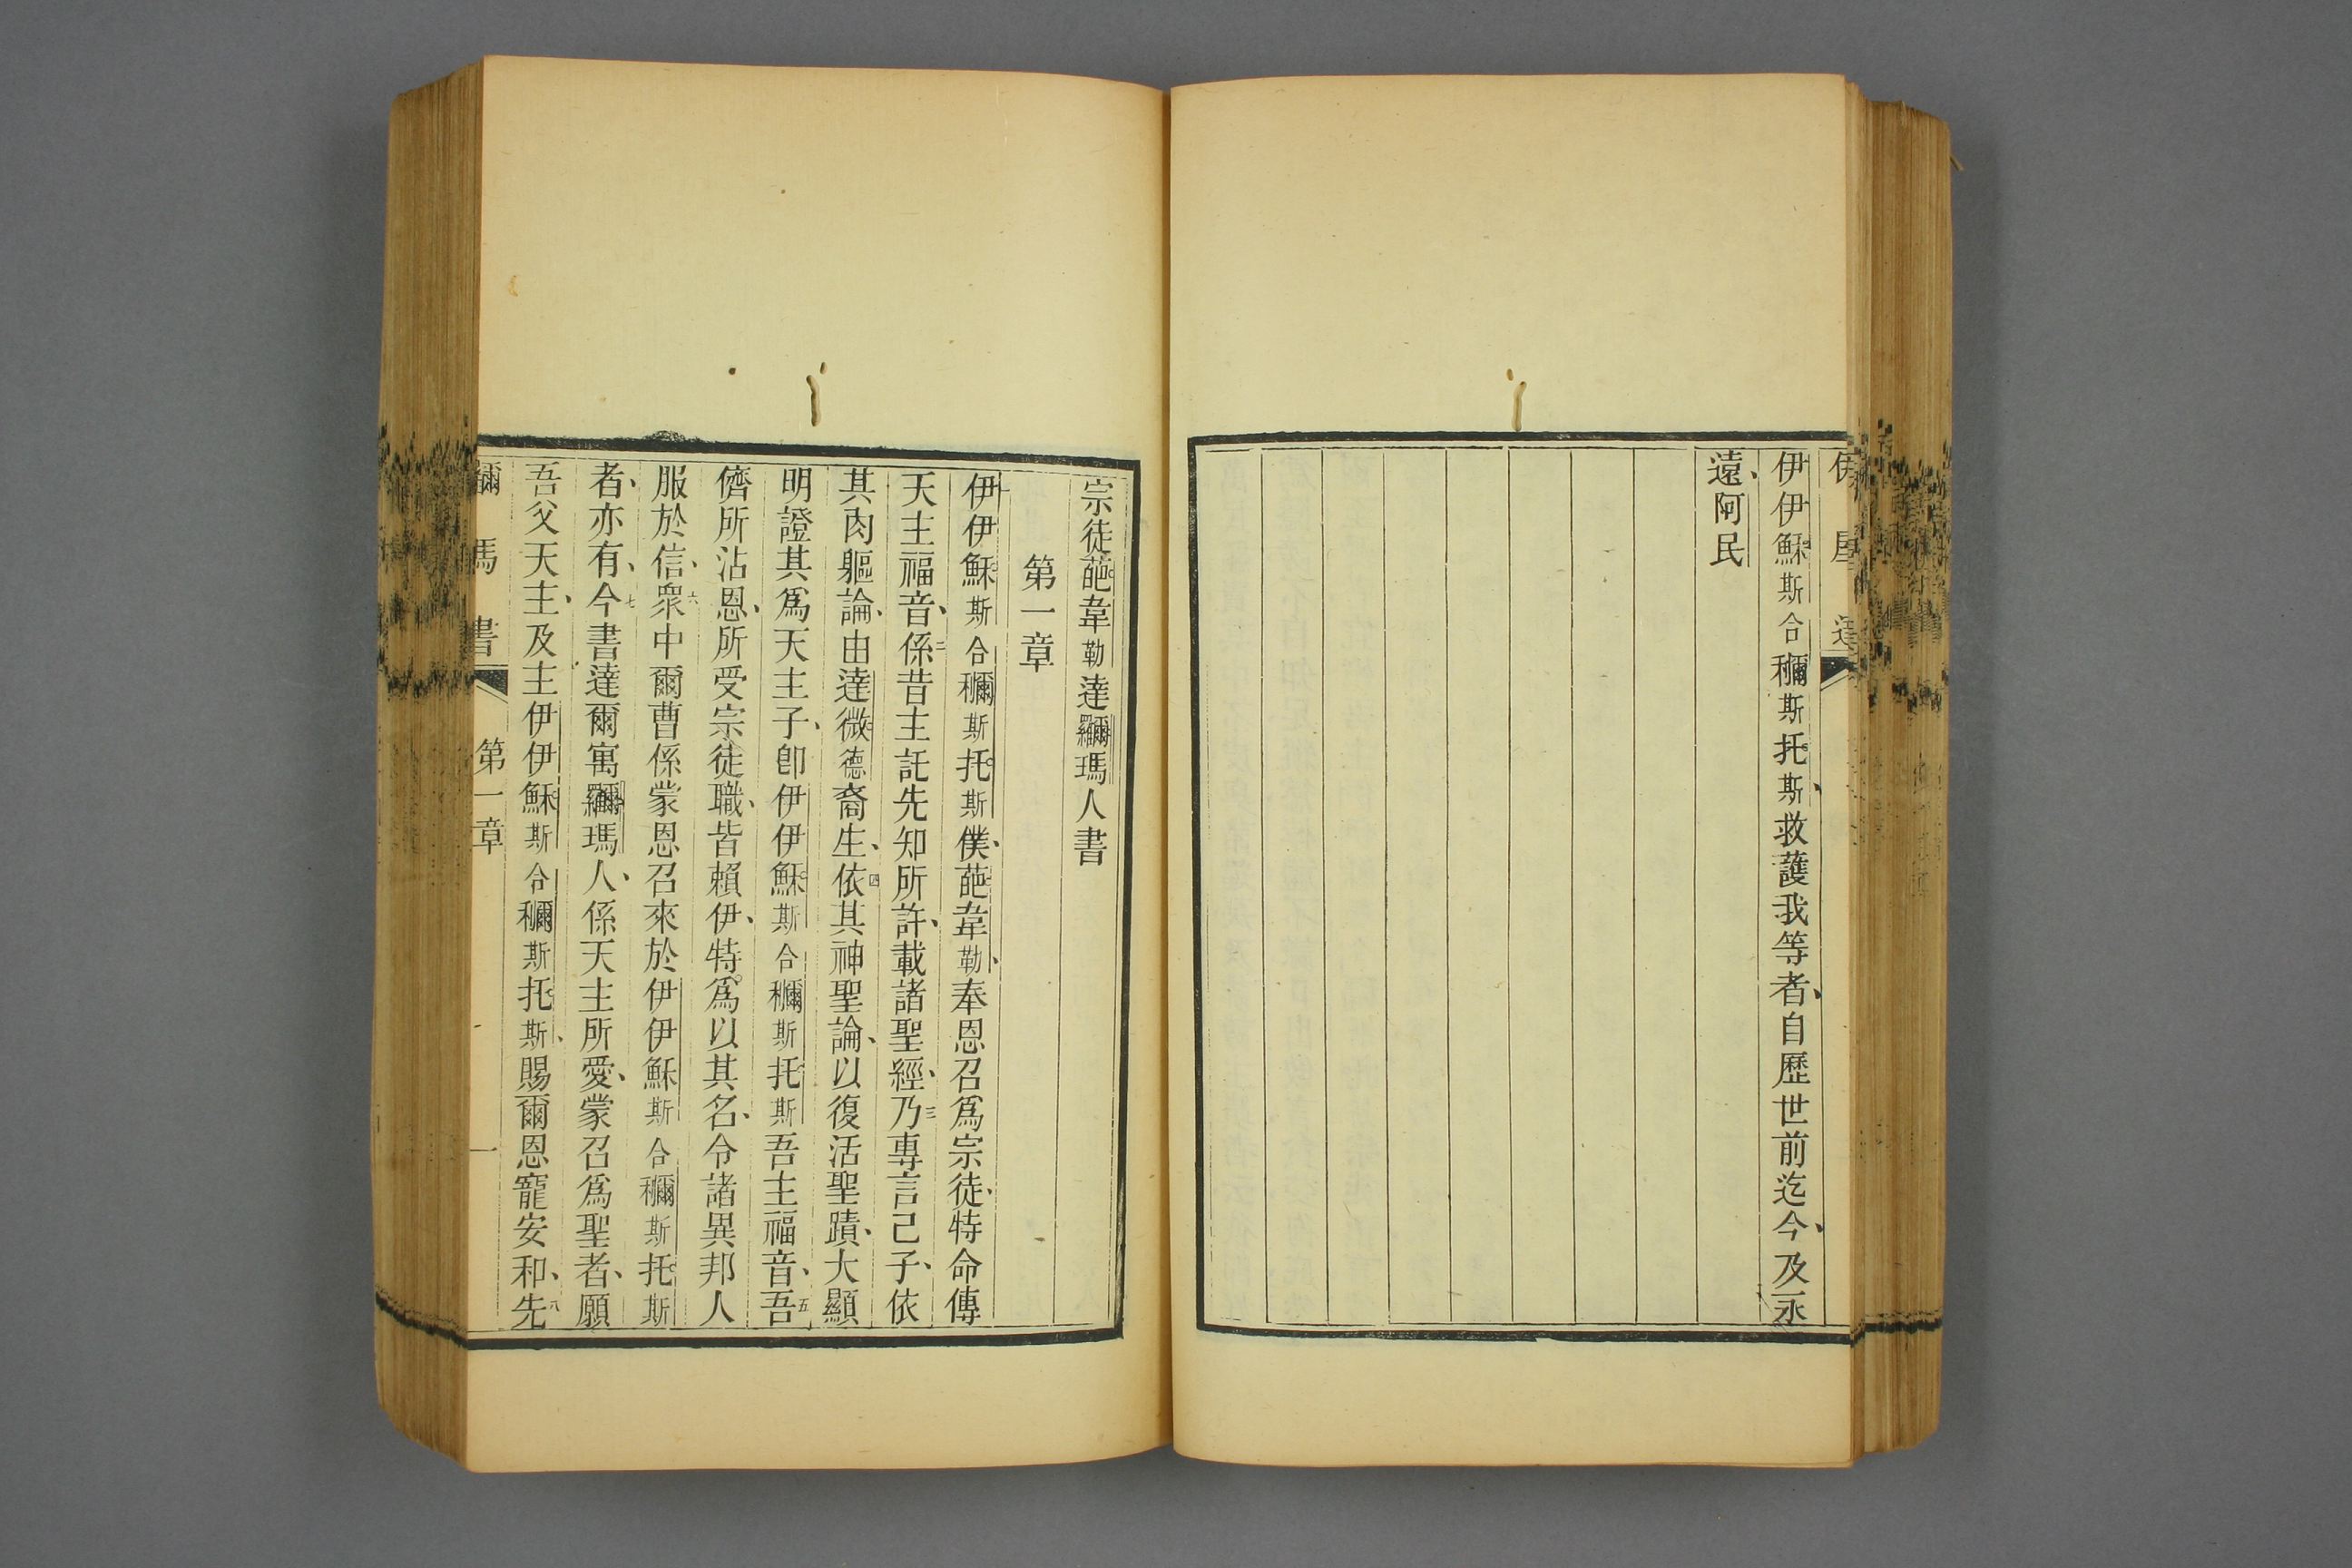 伊伊穌斯合穪斯托斯、救護我等者、自歷世前迄今、及永
遠、阿民
宗徒葩韋勒達羅爾瑪人書
第一章
伊伊穌斯合穪斯托斯僕、葩韋勒、奉恩召爲宗徒、特命傳
天主福音、二係昔主託先知所許、載諸聖經、三乃專言己子、依
其肉軀論、由達微德裔生、四依其神聖論、以復活聖蹟、大顯
明證其爲天主子、卽伊伊穌斯合穪斯托斯吾主福音、五吾
儕所沾恩、所受宗徒職、皆賴伊、特爲以其名、令諸異邦人
服於信、六衆中爾曹係蒙恩召來於伊伊穌斯合穪斯托斯
者、亦有、七今書達爾寓羅爾瑪人、係天主所愛、蒙召爲聖者、願
吾父天主、及主伊伊穌斯合穪斯托斯、賜爾恩寵安和、八先
瑪 書 第一章 一